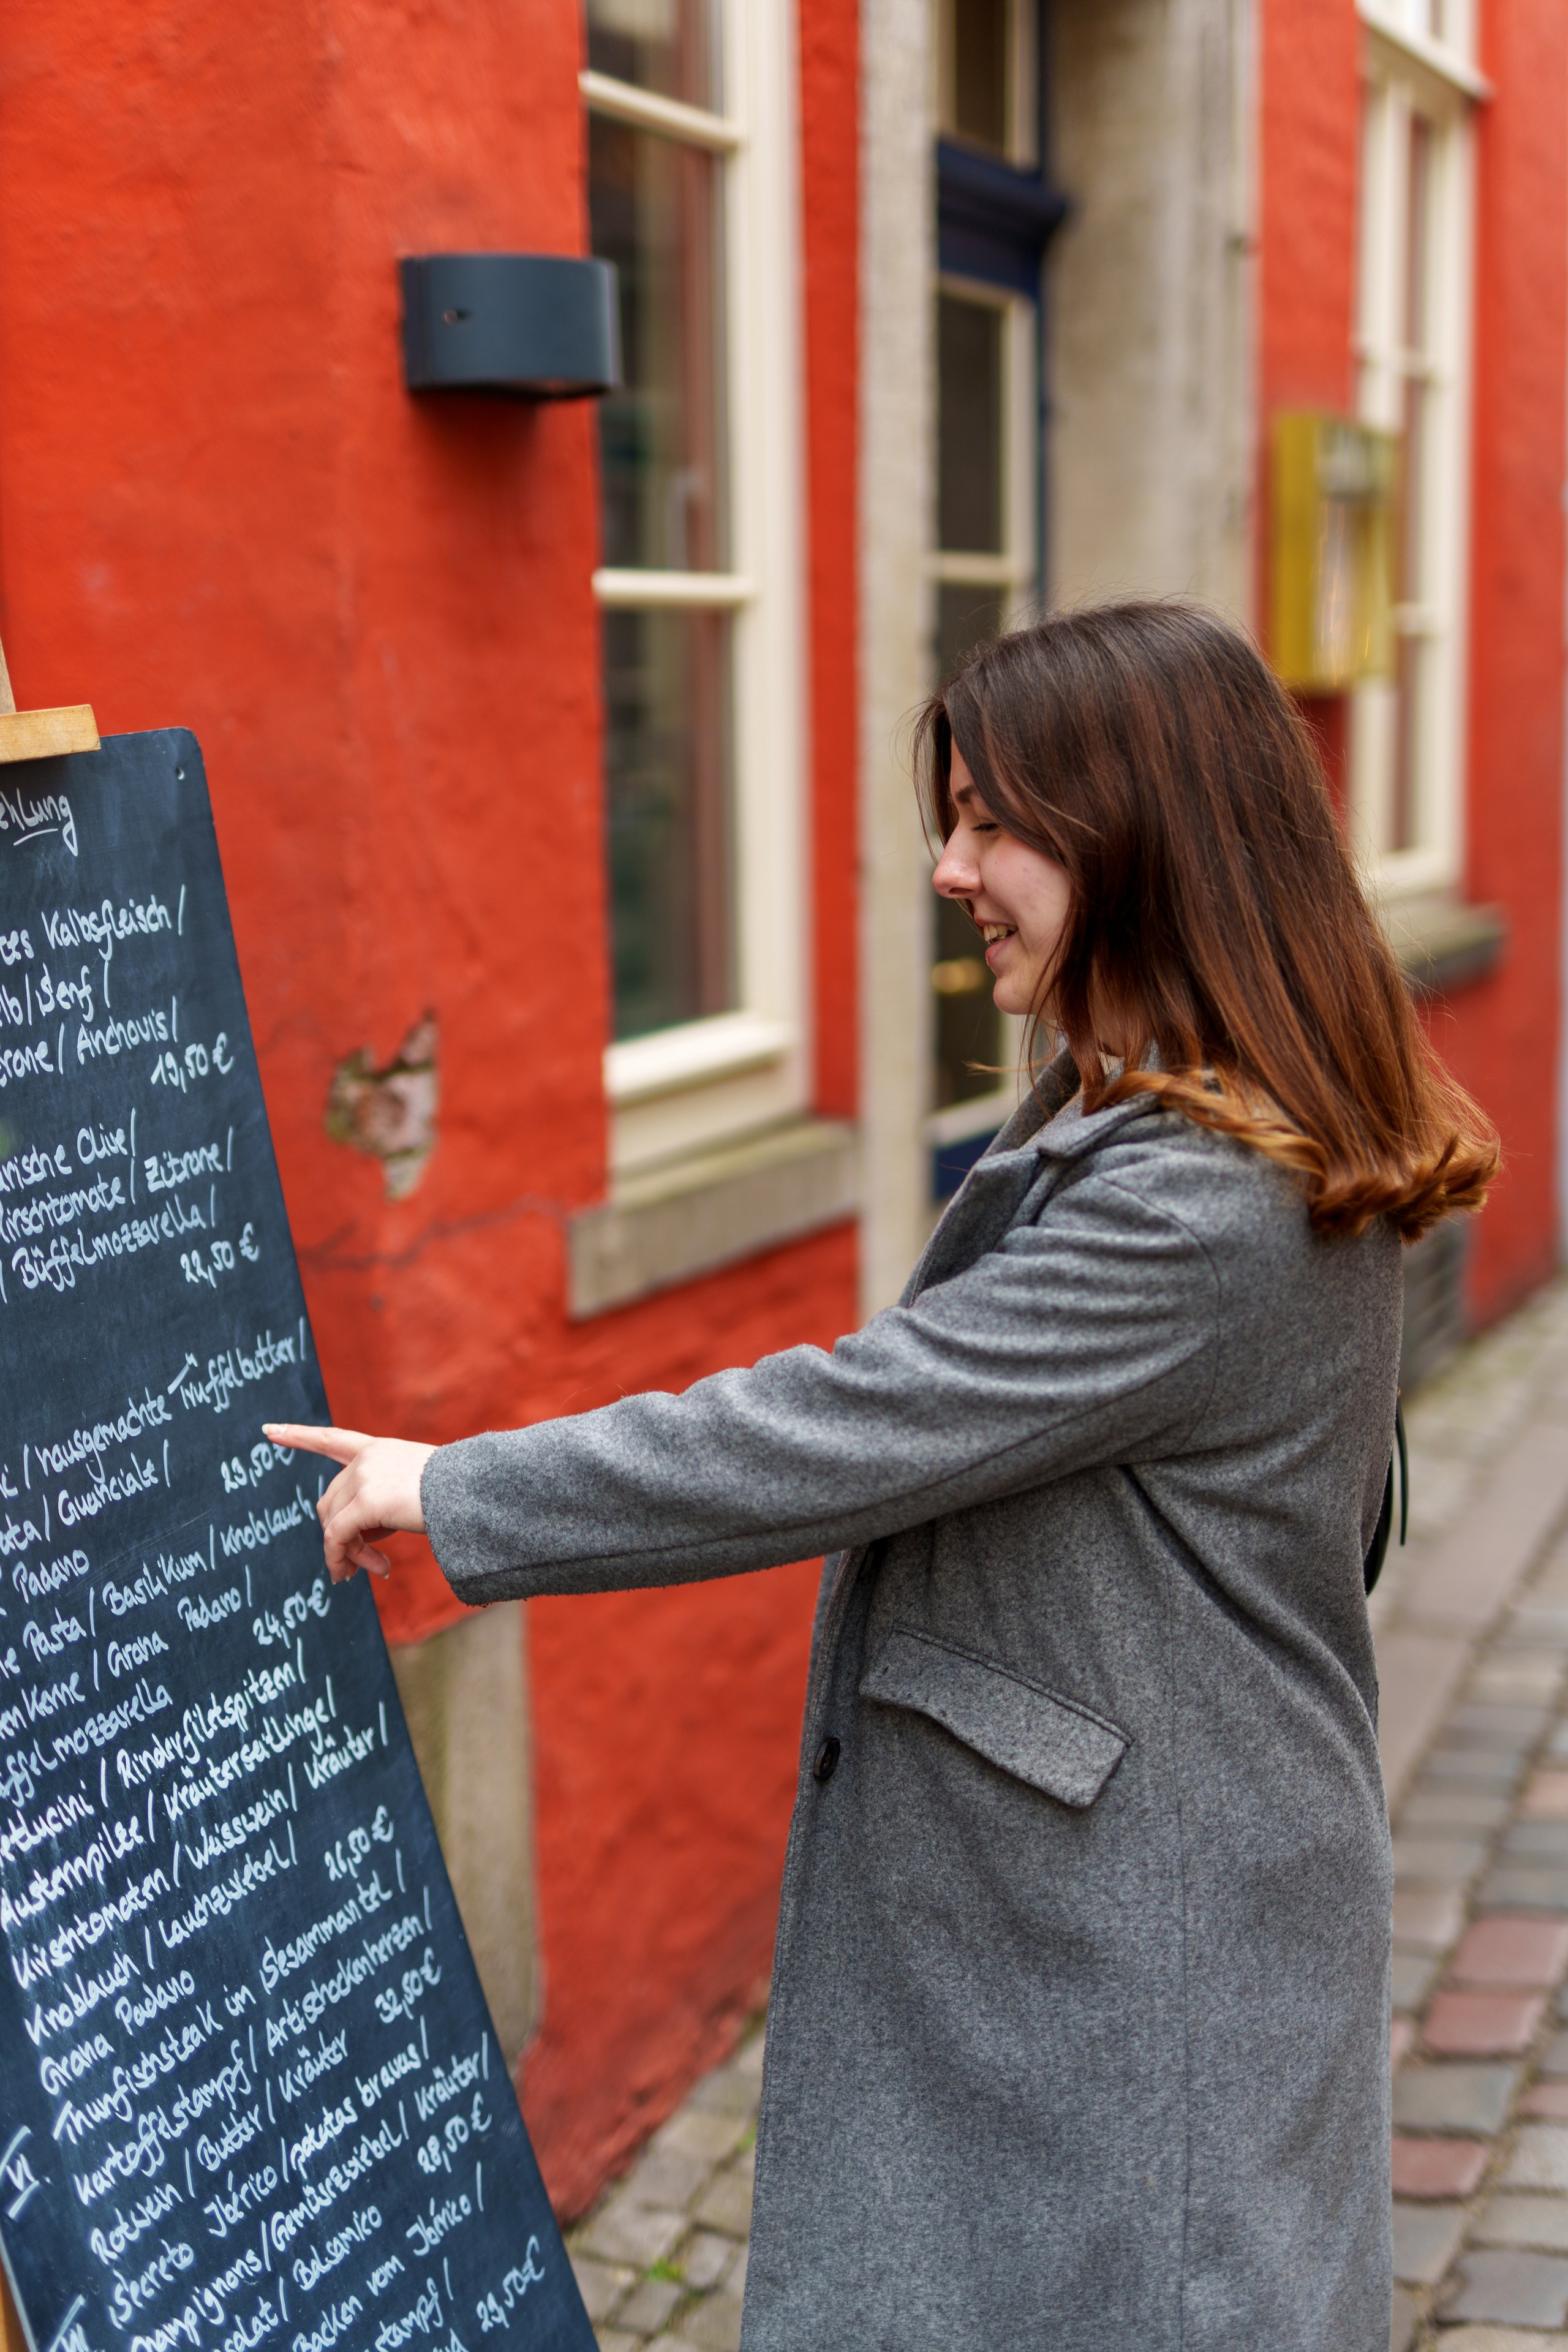 ehlung
tes Kalbsfleisch/
lb/Senf/
trone/Anchovis/
19,50€
arische Olive/
Kirschtomate/Zitrone/
/Büffelmozzarella/
22,50€
/hausgemachte Trüffelbutter/
ata/Guanciale/
23,50€
Padano
le Pasta/Basilikum/Knoblauch/
en Kerne/Grana Padano/
24,50€
üffelmozzarella
ettucini/Rinderfiletspitzen/
Austernpilze/Kräuterseitlinge/
Kirschtomaten/Weisswein/Kräuter/
Knoblauch/Lauchzwiebel/
26,50€
Grana Padano
VI. Thunfischsteak im Sesammantel/
Kartoffelstampf/Artischockenherzen/
Rotwein/Butter/Kräuter
32,50€
VII Secreto Ibérico/patatas bravas/
hampignons/Gemüsezwiebel/Kräuter/
Salat/Balsamico
28,50€
Backen vom Ibérico/
stampf/
29,50€